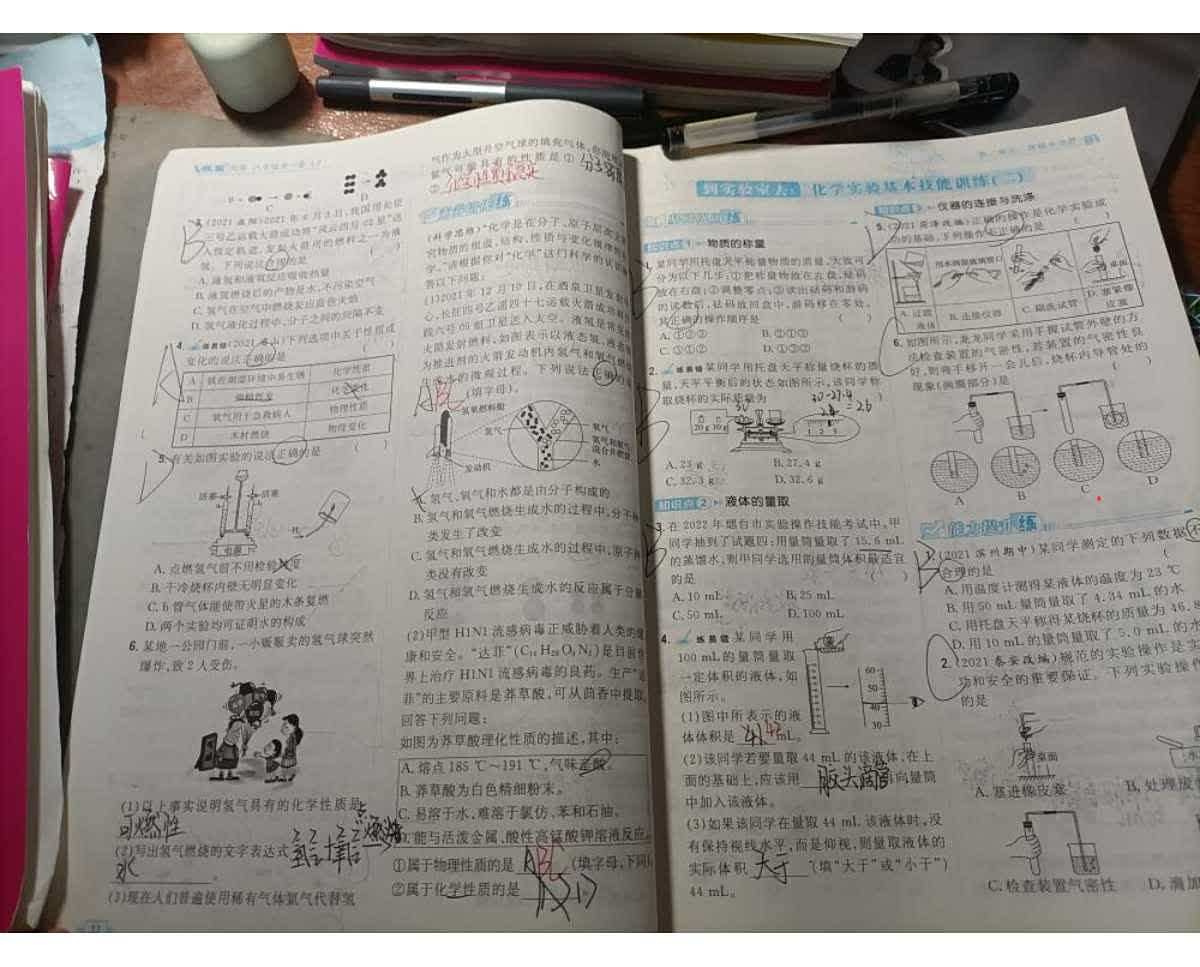 C
D
3.(2021 
三号乙运载火箭成功将“风云四号02星”送
入预定轨道,发射火箭用的燃料之一为液
氢。下列说法合理的是 ( )
A. 液氢和液氧反应吸收热量
B. 液氢燃烧后的产物是水,不污染空气
C. 氢气在空气中燃烧发出蓝色火焰
D. 氢气液化过程中,分子之间的间隔不变
4. 练易错 下列选项中关于性质或
变化的说法正确的是 ( )
A 铁在潮湿环境中易生锈 化学性质
B
C 氧气用于急救病人 物理性质
D 木材燃烧 物理变化
5. 有关如图实验的说法正确的是 ( )
活塞 活塞
电源
A. 点燃氢气前不用检验纯度
B. 干冷烧杯内壁无明显变化
C. b管气体能使带火星的木条复燃
D. 两个实验均可证明水的构成
6. 某地一公园门前,一小贩贩卖的氢气球突然
爆炸,致2人受伤。
(1)以上事实说明氢气具有的化学性质是
可燃性
(2)写出氢气燃烧的文字表达式 氢气+氧气 点燃
水 。
(3)现在人们普遍使用稀有气体氦气代替氢
11
气作为大型升空气球的填充气体,
氦气可能具有的性质是①
②
“化学是在分子、原子层次上
究物质的组成、结构、性质与变化规律的
学。”请根据你对“化学”这门科学的认识
答以下问题:
(1)2021年12月10日,在酒泉卫星发射
心,长征四号乙遥四十七运载火箭成功将
践六号05组卫星送入太空。
火箭发射燃料,如图表示以液态氢、液态
为推进剂的火箭发动机内氢气和氧气燃
生成水的微观过程。下列说法正确的是
ABC (填字母)。
氢氧燃料舱
氢气
氧气
氢气和氧气
混合并燃烧
发动机
水
A. 氢气、氧气和水都是由分子构成的
B. 氢气和氧气燃烧生成水的过程中,分子种
类发生了改变
C. 氢气和氧气燃烧生成水的过程中,原子种
类没有改变
D. 氢气和氧气燃烧生成水的反应属于分解
反应
(2)甲型H1N1流感病毒正威胁着人类的健
康和安全。“达菲”(C₁₆H₂₈O₄N₂)是目前世
界上治疗H1N1流感病毒的良药。生产“达
菲”的主要原料是莽草酸,可从茴香中提取。
回答下列问题:
如图为莽草酸理化性质的描述,其中:
A. 熔点185 ℃~191 ℃,气味辛酸。
B. 莽草酸为白色精细粉末。
C. 易溶于水,难溶于氯仿、苯和石油。
D. 能与活泼金属、酸性高锰酸钾溶液反应。
①属于物理性质的是 ABC (填字母,下同)
②属于化学性质的是 D
到实验室去: 化学实验基本技能训练(二)
知识点1 物质的称量
1. 某同学用托盘天平称量物质的质量,大致可
分为以下几步:①把称量物放在左盘,砝码
放在右盘;②调整零点;③读出砝码和游码
的读数后,砝码放回盒中,游码移在零处。
其正确的操作顺序是 ( )
A. ①②③ B. ②①③
C. ③①② D. ①③②
2. 练易错 某同学用托盘天平称量烧杯的质
量,天平平衡后的状态如图所示,该同学称
取烧杯的实际质量为
20 g 10 g
A. 23 g B. 27.4 g
C. 32.3 g D. 32.6 g
知识点2 液体的量取
3. 在2022年烟台市实验操作技能考试中,甲
同学抽到了试题四:用量筒量取了15.6 mL
的蒸馏水,则甲同学选用的量筒体积最适宜
的是 ( )
A. 10 mL B. 25 mL
C. 50 mL D. 100 mL
4. 练易错 某同学用
100 mL的量筒量取
一定体积的液体,如
图所示。
60
50
40
30
(1)图中所表示的液
体体积是 42 mL。
(2)该同学若要量取44 mL的该液体,在上
面的基础上,应该用 胶头滴管 向量筒
中加入该液体。
(3)如果该同学在量取44 mL该液体时,没
有保持视线水平,而是仰视,则量取液体的
实际体积 大于 (填“大于”或“小于”)
44 mL。
仪器的连接与洗涤
5. 正确的操作是化学实验成
功的基础,下列操作不正确的是
用水润湿玻璃管口
桌面
A. 过滤液体 B. 连接仪器 C. 刷洗试管 D. 塞紧橡皮塞
6. 如图所示,龙龙同学采用手握试管外壁的方
法检查装置的气密性,若装置的气密性良
好,则将手移开一会儿后,烧杯内导管处的
现象(画圈部分)是 ( )
A
B
C
D
能力提升练
1.(2021滨州期中)某同学测定的下列数据
合理的是
A. 用温度计测得某液体的温度为23 ℃
B. 用50 mL量筒量取了4.34 mL的水
C. 用托盘天平称得某烧杯的质量为46.
D. 用10 mL的量筒量取了5.0 mL的水
2.(2021泰安改编)规范的实验操作是实
功和安全的重要保证。下列实验操
的是
桌面
A. 塞进橡皮塞
B. 处理废
C. 检查装置气密性
D. 滴加